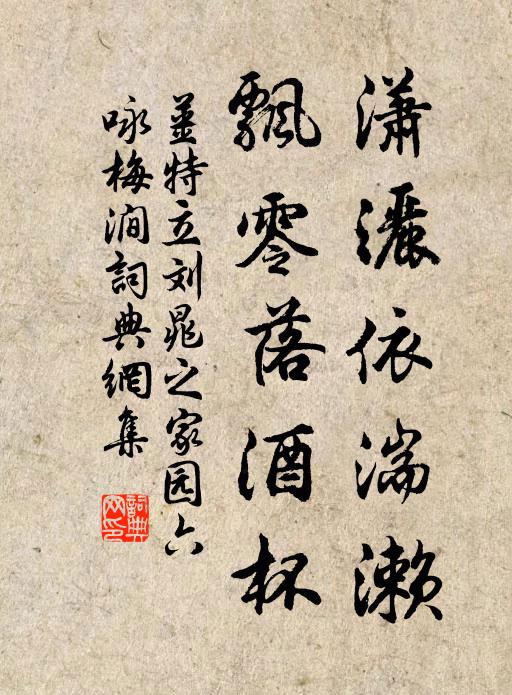 潇灑依湍濑
飄零落酒杯
姜特立刘晁之家园六
咏梅涧詞典網集
詞典网印